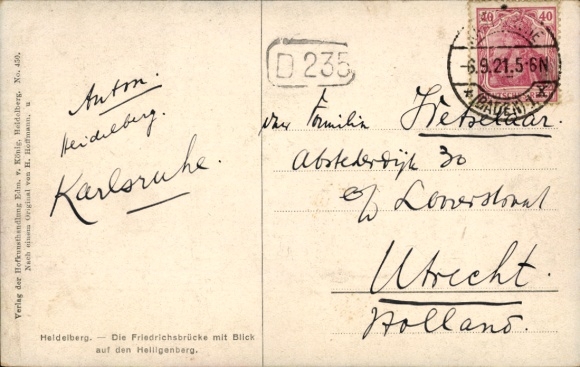 Verlag der Hofkunsthandlung Edm. v. König, Heidelberg. No. 450.
Nach einem Original von H. Hoffmann.
Anton.
Heidelberg.
Karlsruhe.
Heidelberg. — Die Friedrichsbrücke mit Blick
auf den Heiligenberg.
D 235
40 40
-6.9.21.5-6N
(BADEN)
Familie
Abstederdijk 30
Utrecht.
Holland.